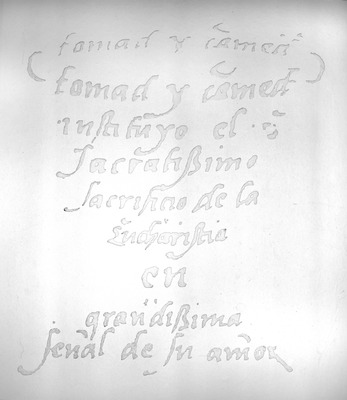 tomad y comed
tomad y comed
instituyo el
sacratissimo
sacrificio de la
Eucharistia
en
grandissima
señal de su amor